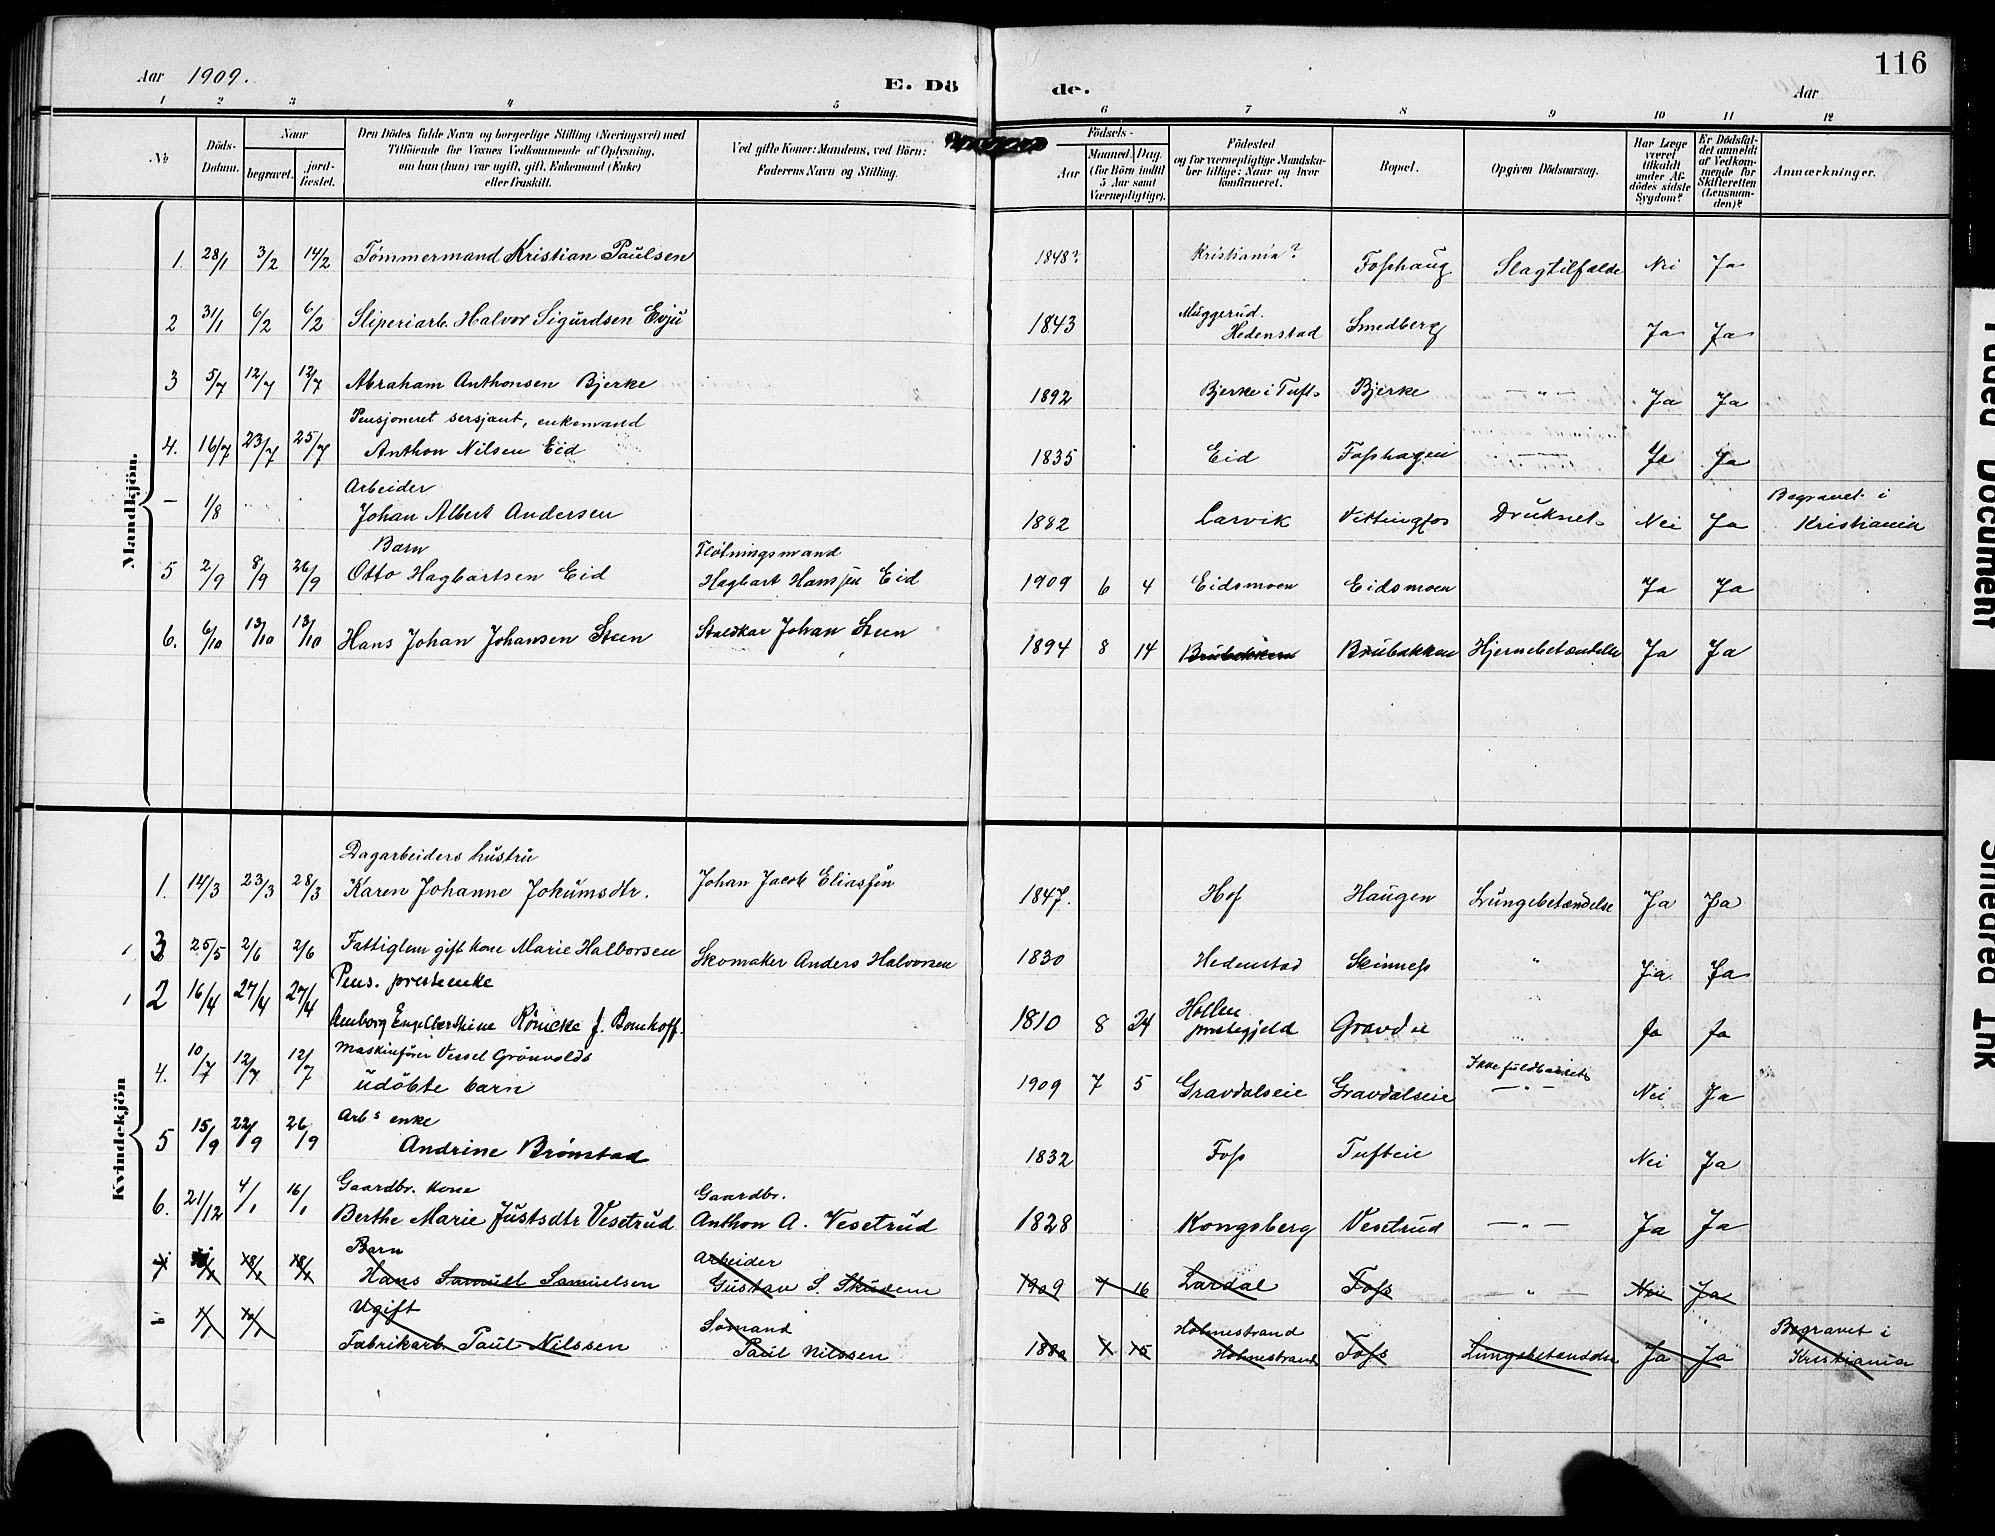 Aar 1909.
E. Dö
de.
116
Aar
1 2 3 4 5 6 7 8 9 10 11 12
No
Döds-Datum.
Naar
begravet.
jord-fæstet.
Den Dödes fulde Navn og borgerlige Stilling (Næringsvei) med
Tilföiende for Voxnes Vedkommende af Oplysning,
om han (hun) var ugift, gift, Enkemand (Enke)
eller fraskilt.
Ved gifte Koner: Mandens, ved Börn:
Faderens Navn og Stilling.
Födsels-
Aar
Maaned. Dag.
(for Börn indtil
5 Aar samt
Værnepligtige).
Födested
og for værnepligtige Mandska-
ber tillige: Naar og hvor
konfirmeret.
Bopæl.
Opgiven Dödsaarsag.
Har Læge
været
tilkaldt
under Af-
dödes sidste
Sygdom?
Er Dödsfal-
det anmeldt
af Vedkom-
mende for
Skifteretten
(Lensman-
den)?
Anmærkninger.
Mandkjön.
1. 28/1 3/2 14/2 Tømmermand Kristian Paulsen 1848? Kristiania? Fosshaug Slagtilfælde Nei Ja
2 31/1 6/2 6/2 Sliperiarb. Halvor Sigurdsen Evju 1843 Muggerud. Hedenstad Smedberg Ja Ja
3 5/7 12/7 12/7 Abraham Anthonsen Bjerke 1892 Bjerke i Tuft Bjerke —"— Ja Ja
Pensjoneret sersjant, enkemand
4. 16/7 23/7 25/7 Anthon Nilsen Eid 1835 Eid Fosshagen —"— Ja Ja
Arbeider
— 1/8 Johan Albert Andersen 1882 Larvik Vittingfos Druknet Nei Ja Begravet i Kristiania
Barn Fløtningsmand
5 2/9 8/9 26/9 Otto Hagbartsen Eid Hagbart Hanssen Eid 1909 6 4 Eidsmoen Eidsmoen Ja Ja
6. 6/10 13/10 13/10 Hans Johan Johansen Steen Staldkar Johan Steen 1894 8 14 Brubakken Brubakken Hjernebetændelse Ja Ja
Kvindekjön
Dagarbeiders hustru
1. 14/3 23/3 28/3 Karen Johanne Jokumsdtr. Johan Jacob Eliassen 1847. Hof Haugen Lungebetændelse Ja Ja
3 25/5 2/6 2/6 Fattiglem gift kone Marie Halvorsen Skomaker Anders Halvorsen 1830 Hedenstad Skinnes " Ja Ja
Pens. presteenke
2 16/4 27/4 27/4 Engelbertine f. Bomhoff. 1810 8 24 Hollen prestegjeld Ja Ja
Maskinfører Vessel Grønvolds
4. 10/7 12/7 12/7 udøbte barn 1909 7 5 Gravdalseie Gravdalseie Ikke fuldbaaret —"— Nei Ja
Arb.s enke
5 15/9 22/9 26/9 Andrine Brønstad 1832 Foss Tufteie Nei Ja
Gaardbr. kone Gaardbr.
6. 21/12 4/1 16/1 Berthe Marie Justsdtr Vesetrud Anthon A. Vesetrud 1828 Kongsberg Vesetrud —"— Ja Ja
Barn Arbeider
7 18/1 18/1 Hans Samuel Samuelsen Gustav S. 1909 7 16 Lardal Foss —"— Nei Ja
Ugift Sømand
Fabrikarb. Paul Nilssen Paul Nilssen 1880 X 15 Holmestrand Holmestrand Foss Lungebetændelse Ja Ja Begravet i Kristiania
Faded Document
Smeared Ink